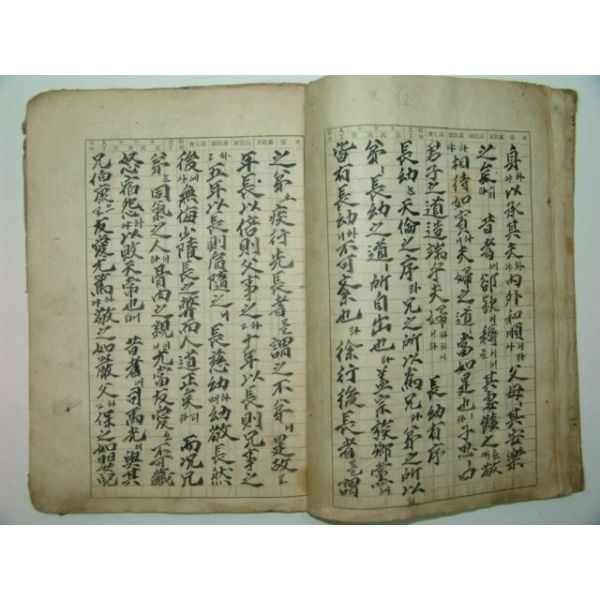 身하야以承其夫하야內外和順이라사父母其安樂
之矣리라 昔者에郤缺이耨어늘其妻饁之호대敬
하야相待如賓하니夫婦之道는當如是也라子思曰
君子之道造端乎夫婦라하시니라 長幼有序
長幼는天倫之序라兄之所以爲兄과弟之所以
弟 長幼之道 所自出也라盖宗族鄕黨에
皆有長幼하니不可紊也라徐行後長者를謂
之弟오疾行先長者를謂之不弟니是故로
年長以倍則父事之하고十年以長則兄事之
하고五年以長則肩隨之니長慈幼하며幼敬長然
後에사無侮少陵長之弊而人道正矣리라 而况兄
弟는同氣之人이라骨肉之親이니尤當友愛오不可藏
怒宿怨하야以敗天常也니라 昔者에司馬光이與其
兄伯康으로友愛尤篤하야敬之如嚴父하고保之如嬰兒